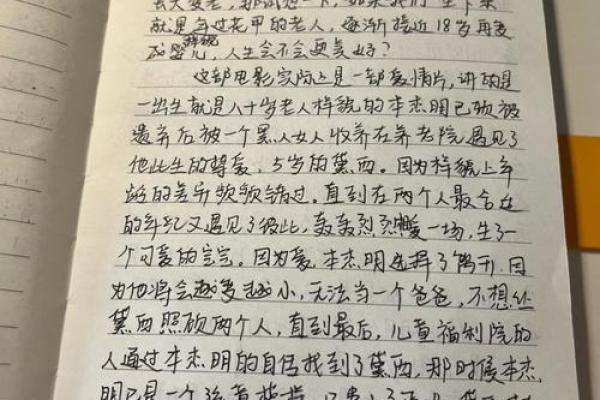 去大变老，那试想一下，如果我们一生下来
就是年过花甲的老人，逐渐接近18岁再变
成婴儿样貌，人生会不会更美好？
这部电影实际上是一部爱情片，讲的是
一出生就是八十岁老人样貌的本杰明巴顿被
遗弃后被一个黑人女人收养在养老院遇见了
他此生的挚爱，5岁的黛西。因为样貌上年
龄的差异频频错过。直到在两个人最合适
的年纪又遇见了彼此，轰轰烈烈爱一场，生了一
个可爱的宝宝。因为爱，本杰明选择了离开，因
为他将会越变越小，无法当一个爸爸，不想让
黛西照顾两个人，直到最后，儿童福利院的
人通过本杰明的自传找到了黛西，那时候本杰
明已是一个孩童模样